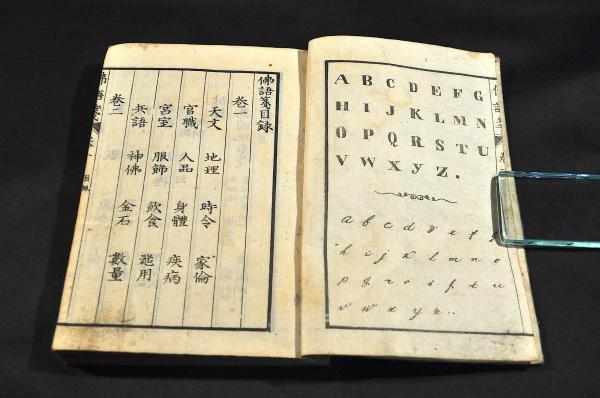 A B C D E F G
H I J K L M N
O P Q R S T U
V W X Y Z.
a b c d e f g
h i j k l m n o
p q r s ſ t u
v w x y z..
佛語箋目録
卷一
天文 地理 時令 家倫
官職 人品 身體 疾病
宮室 服飾 飲食 器用
兵語 神佛 金石 數量
卷二
佛語箋